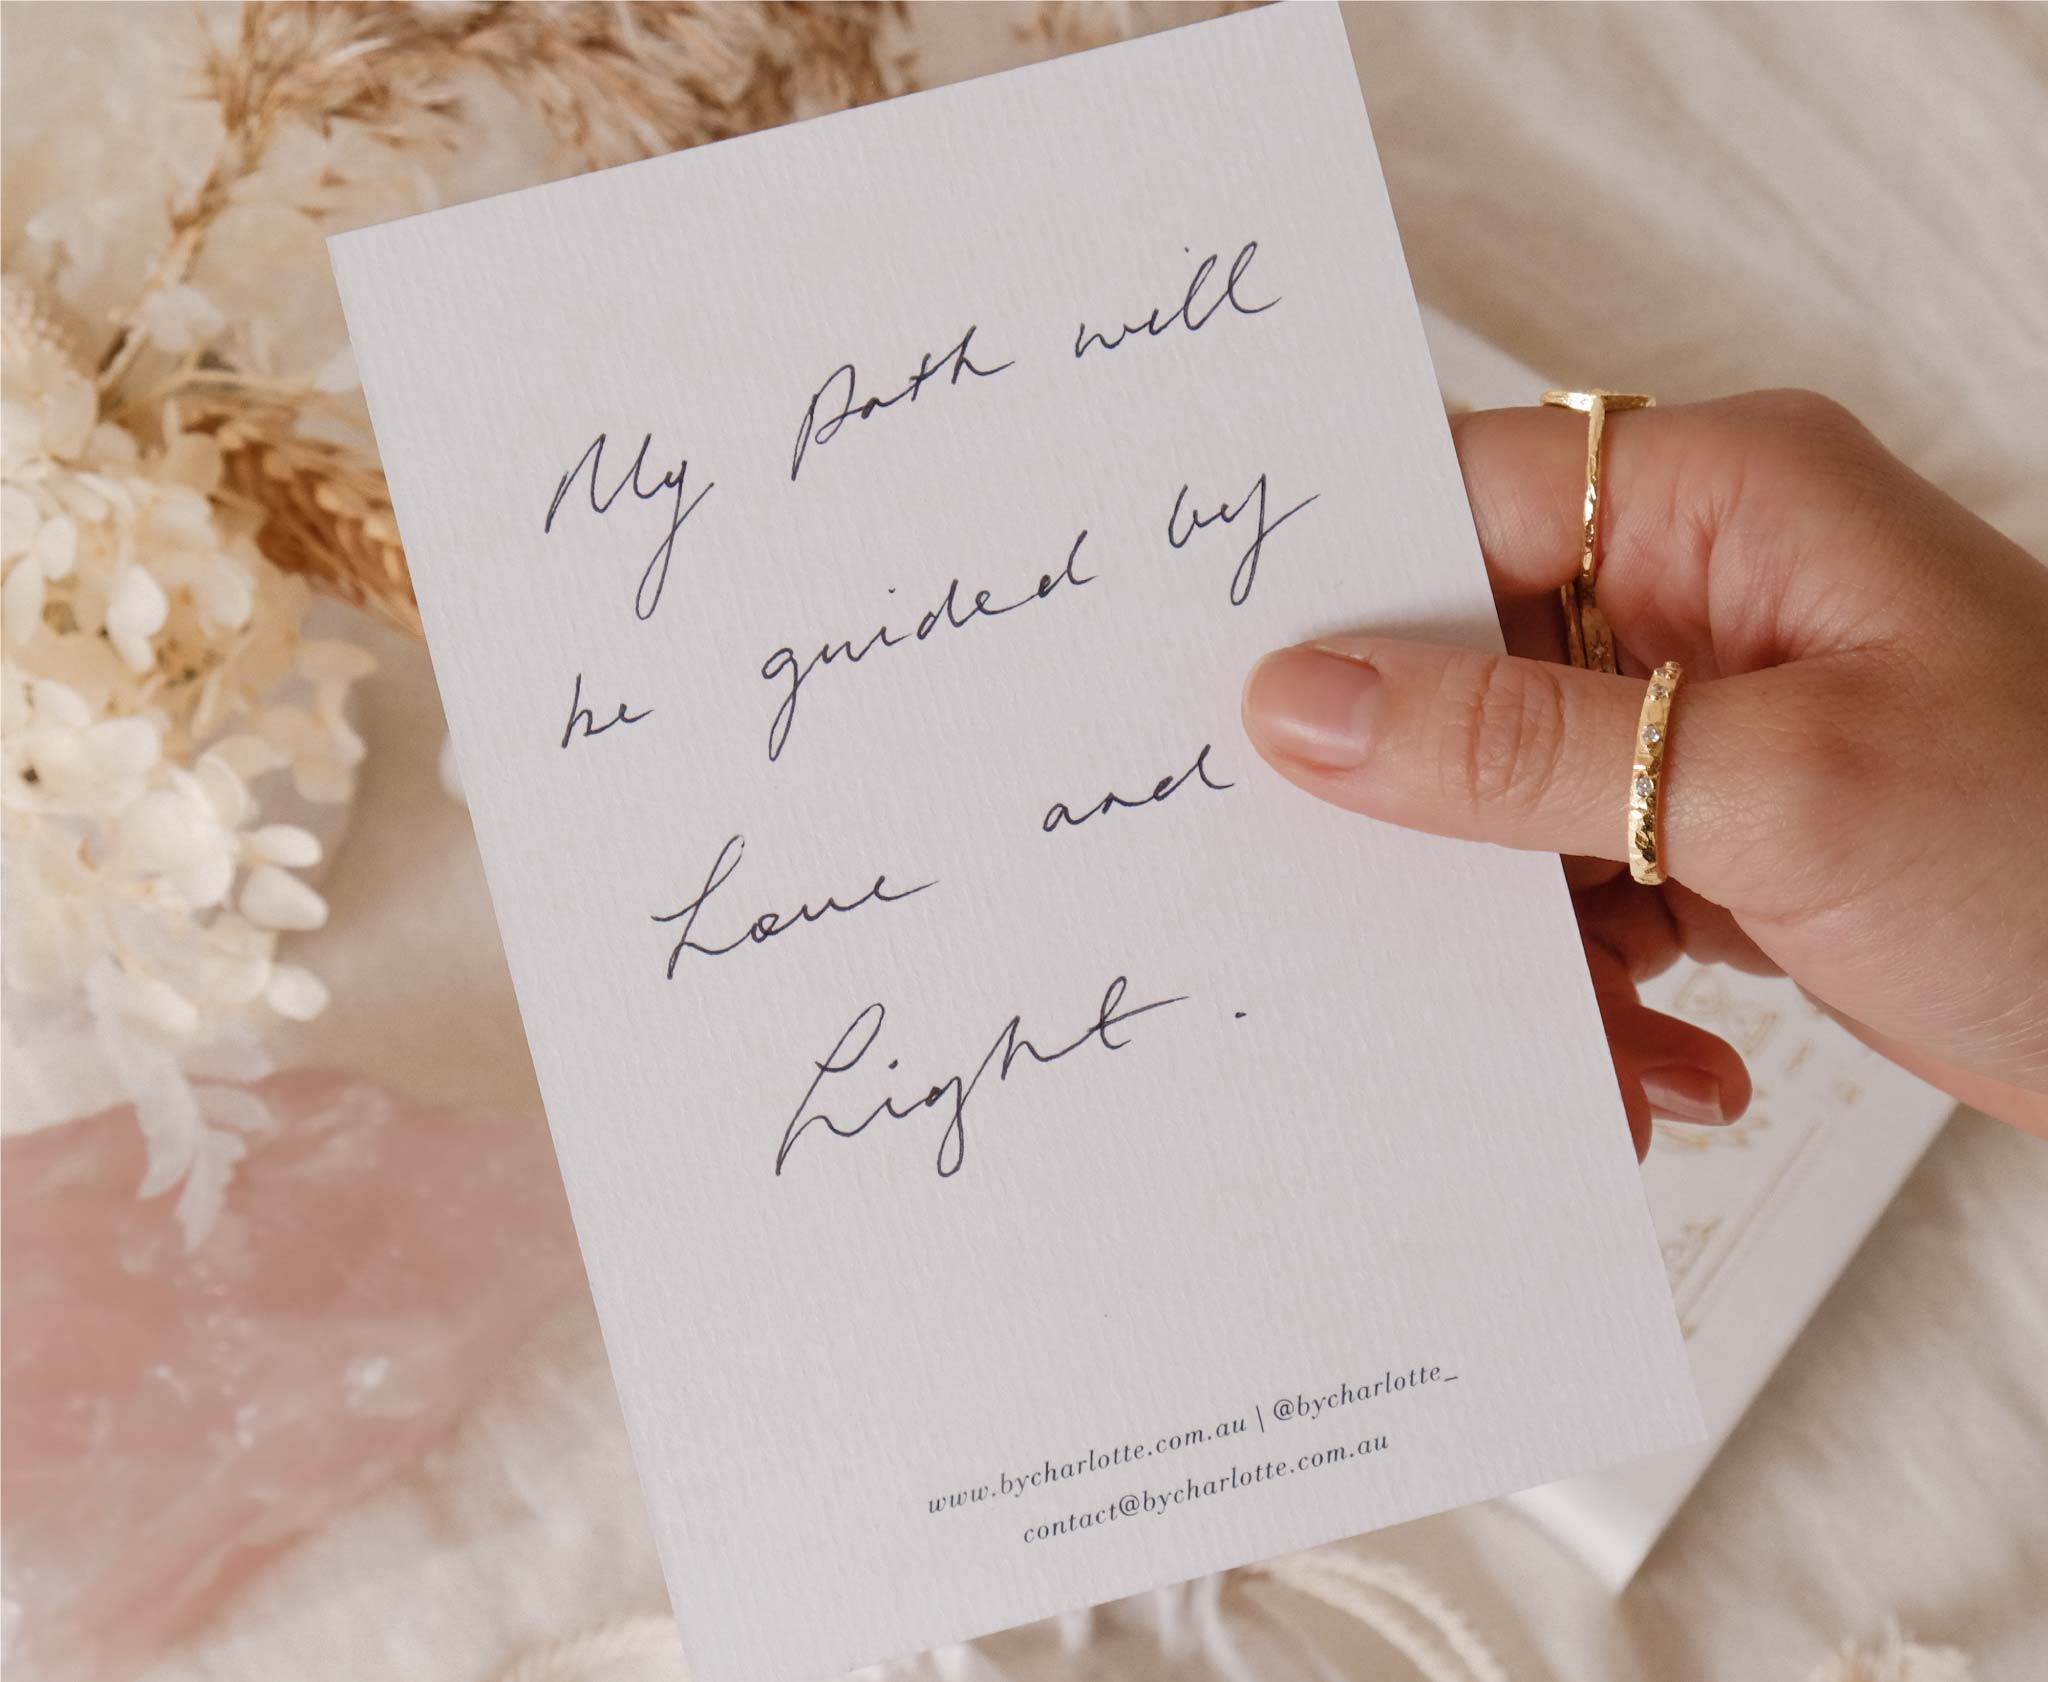 My Path will
be guided by
Love and
Light.
www.bycharlotte.com.au | @bycharlotte_
contact@bycharlotte.com.au